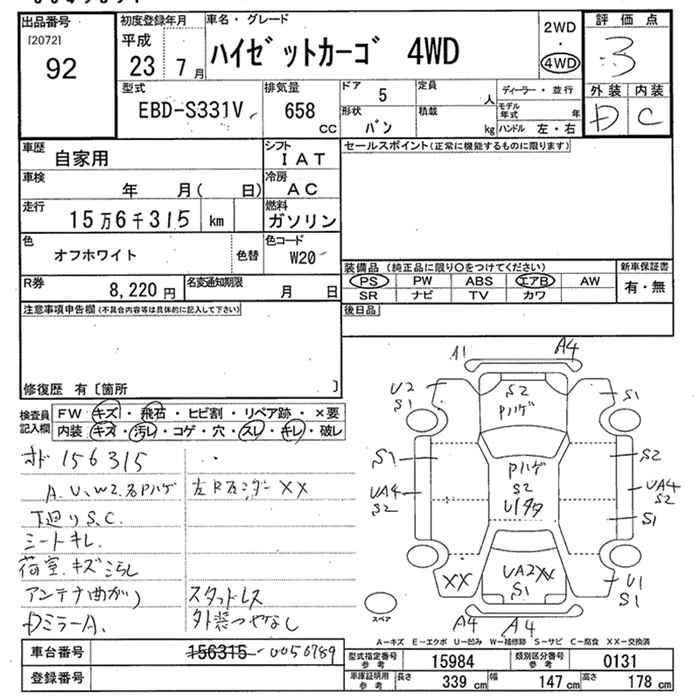 出品番号
[2072]
92
初度登録年月
平成
23年 7月
車名・グレード
ハイゼットカーゴ 4WD
2WD
・
4WD
評価点
3
外装 内装
D C
型式
EBD-S331V
排気量
658 CC
ドア 5
形状 バン
定員 人
積載 kg
ディーラー・並行
モデル年式 年
ハンドル 左・右
車歴
自家用
シフト
IAT
セールスポイント(正常に機能するものに限ります)
車検
年 月( 日)
冷房
AC
走行
15万6千315 km
燃料
ガソリン
色
オフホワイト
色替
色コード
W20
R券
8,220円
名変通知期限
月 日
装備品 (純正品に限り〇をつけてください)
PS PW ABS エアB AW
SR ナビ TV カワ
新車保証書
有・無
後日品
注意事項申告欄(不具合内容等は具体的に記入して下さい)
修復歴 有〔箇所 〕
検査員記入欄
FW キズ・飛石・ヒビ割・リペア跡・×要
内装 キズ・汚レ・コゲ・穴・スレ・キレ・破レ
オド156315
A.U.W2.名Pハゲ
下廻りS.C.
シートキレ.
荷室.キズこうし
アンテナ曲がり
DミラーA.
XX
スタッドレス
外装つやなし
A1 A4
U2 S1
S2 Pハゲ
S1
S1 S2
Pハゲ S2
UA4 S2
UA4 S2
S1
XX
UA2XX S1
U1 S1
A4 A4
スペア
A-キズ E-エクボ U-凹み W-補修跡 S-サビ C-腐食 XX-交換済
車台番号
156315 0056789
登録番号
型式指定番号 参考
15984
類別区分番号 参考
0131
車庫証明用 参考
長さ 339cm 幅 147cm 高さ 178cm